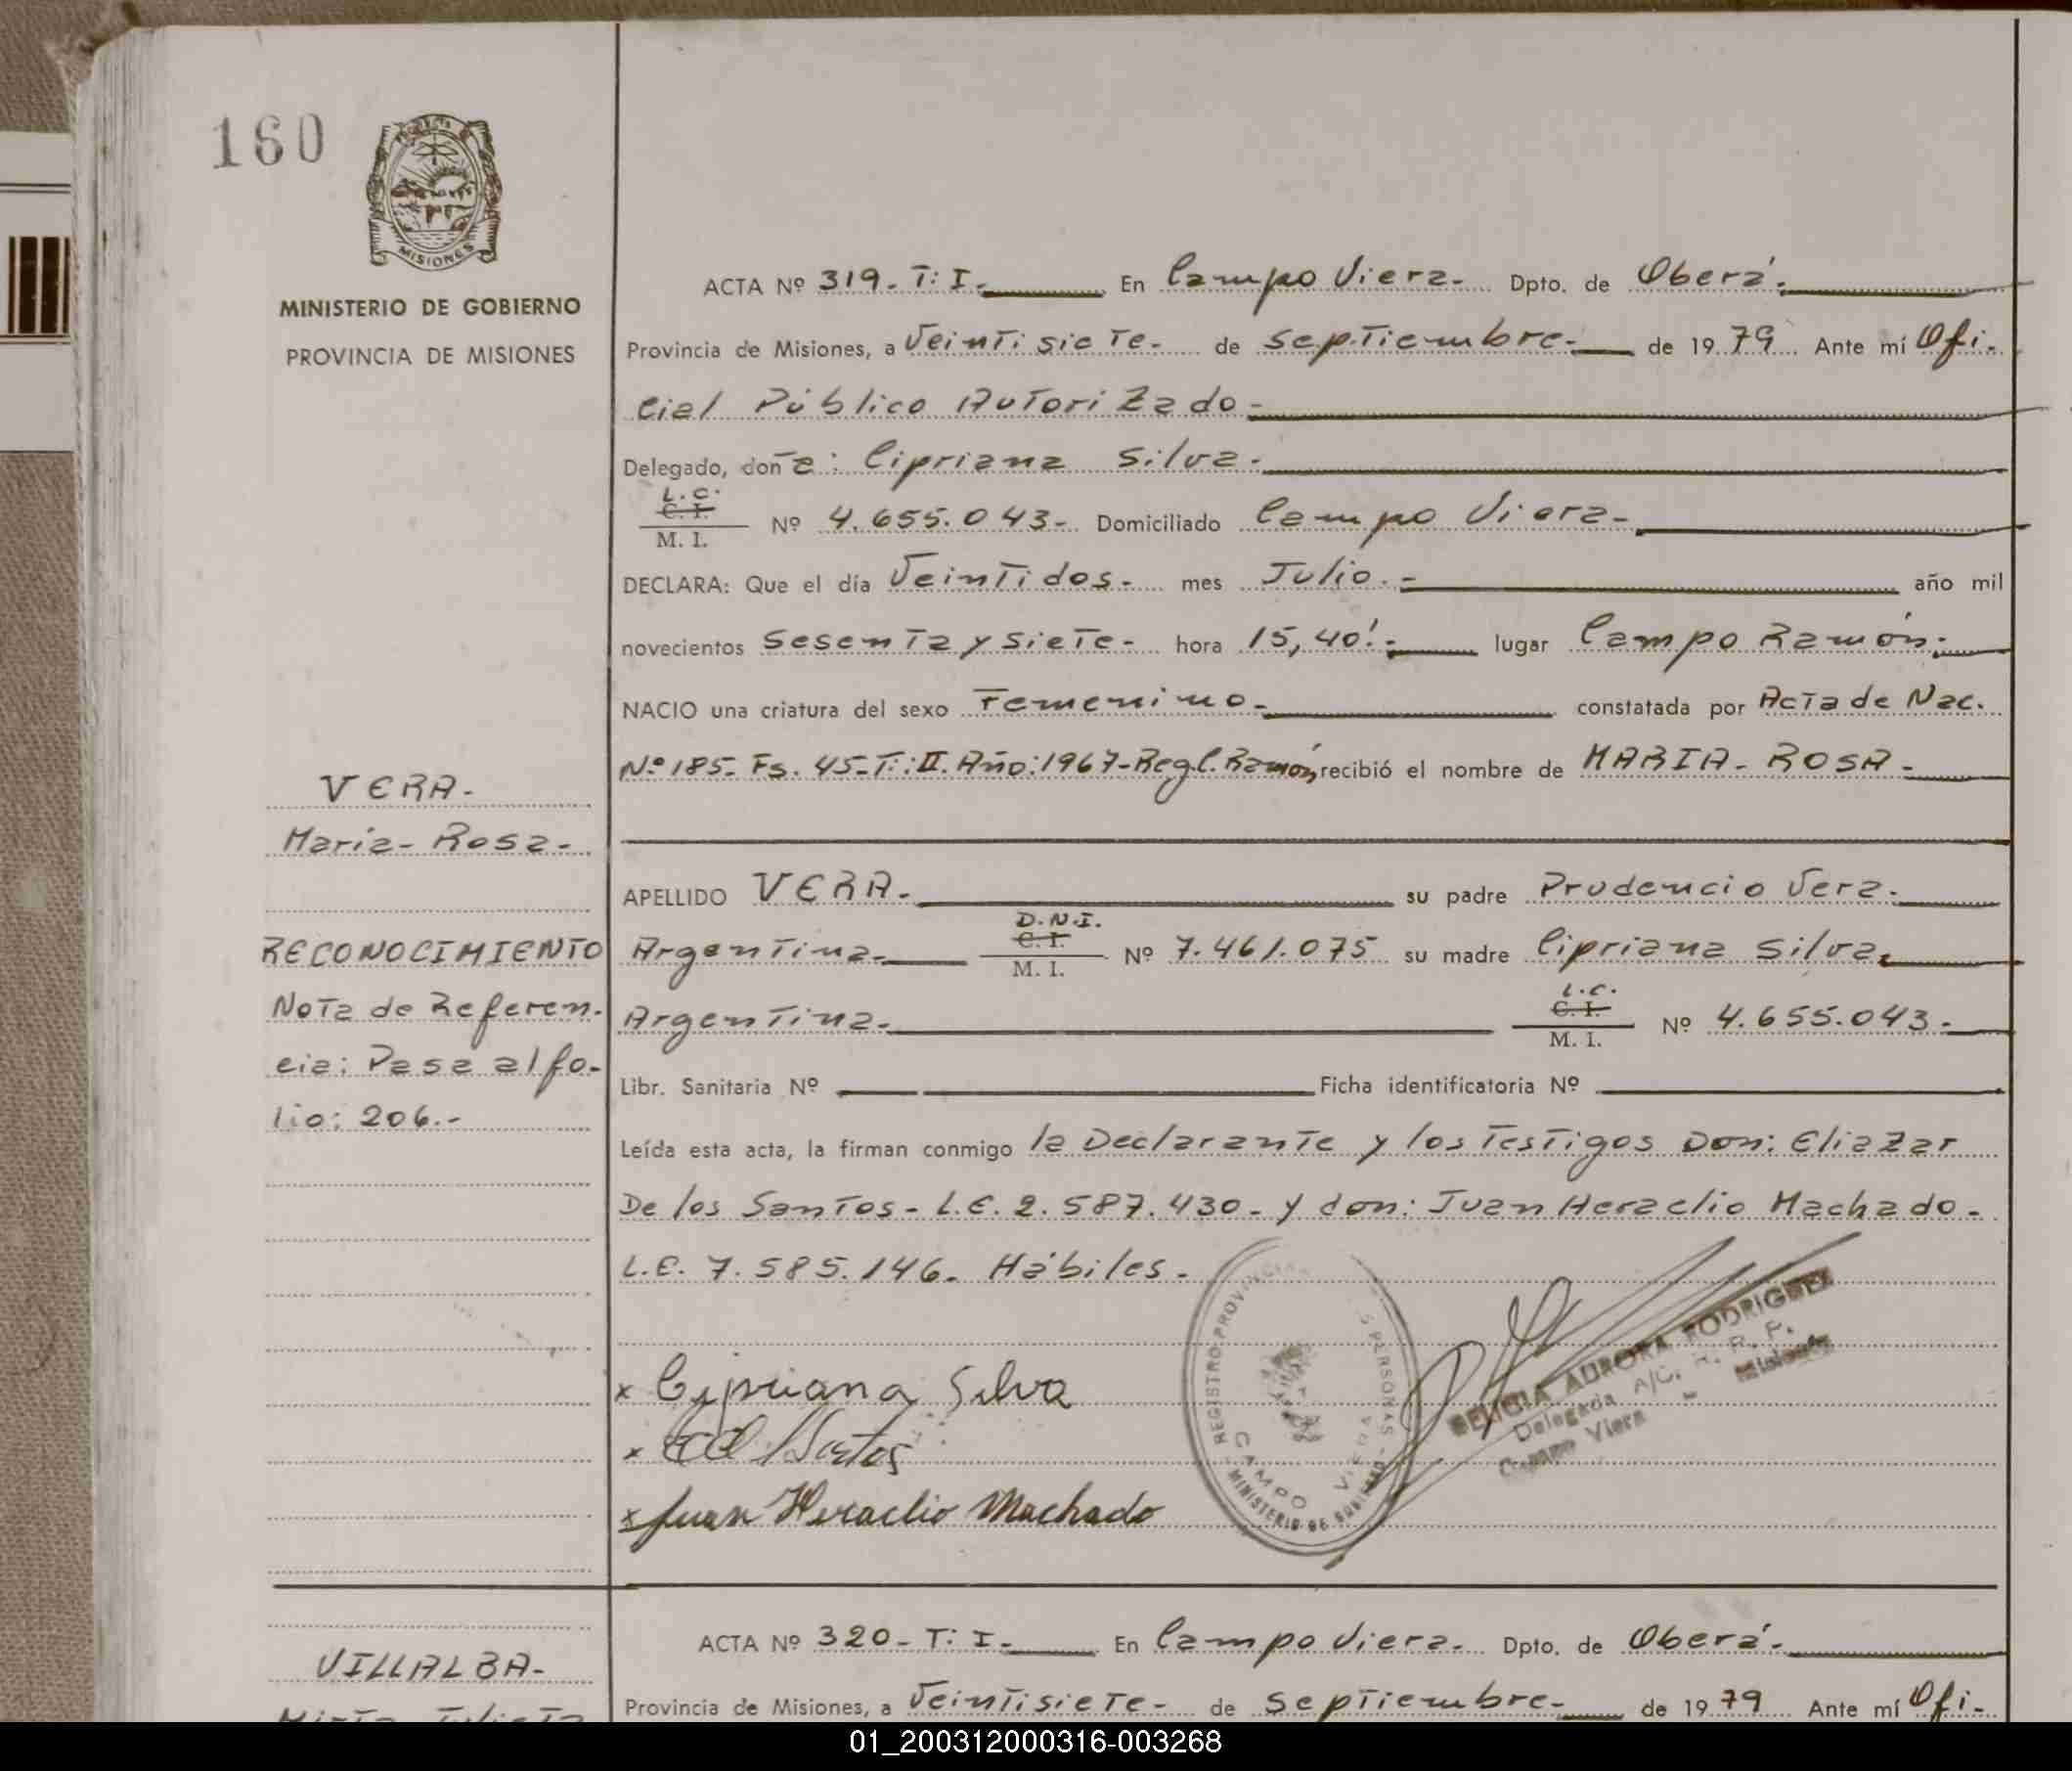 160
MISIONES
MINISTERIO DE GOBIERNO
PROVINCIA DE MISIONES
ACTA Nº 319- T: I.- En Campo Viera- Dpto. de Oberá.-
Provincia de Misiones, a Veintisiete- de septiembre- de 1979 Ante mí Ofi-
cial Público Autorizado-
Delegado, doña: Cipriana Silva.
L.C.
C. I.
M. I.
Nº 4.655.043- Domiciliado Campo Viera-
DECLARA: Que el día Veintidos- mes Julio.- año mil
novecientos Sesenta y siete- hora 15,40!- lugar Campo Ramón.-
NACIO una criatura del sexo Femenino- constatada por Acta de Nac.
Nº 185- Fs. 45-T: II. Año: 1967-Reg C. Ramón, recibió el nombre de MARIA- ROSA-
VERA-
Maria- Rosa-
APELLIDO VERA- su padre Prudencio Vera-
Argentina- D.N.I.
C. I.
M. I.
Nº 7.461.075 su madre Cipriana Silva,
Argentina- L.C.
C. I.
M. I.
Nº 4.655.043-
RECONOCIMIENTO
Nota de Referen-
cia: Pasa al fo-
lio: 206.-
Libr. Sanitaria Nº Ficha identificatoria Nº
Leída esta acta, la firman conmigo la Declarante y los Testigos Don: Eliazar
De los Santos- L.E. 2.587.430- y don: Juan Heraclio Machado-
L.E. 7.585.146. Hábiles-
x Cipriana Silva
x Santos
x Juan Heraclio Machado
REGISTRO PROVINCIAL
PERSONAS
CAMPO VIERA
MINISTERIO DE GOBIERNO
AURORA RODRIGUEZ
Delegada A/C. R. R. P.
Campo Viera - Misiones
VILLALBA-
ACTA Nº 320- T: I- En Campo Viera- Dpto. de Oberá-
Provincia de Misiones, a Veintisiete- de septiembre- de 1979 Ante mí Ofi-
01_200312000316-003268